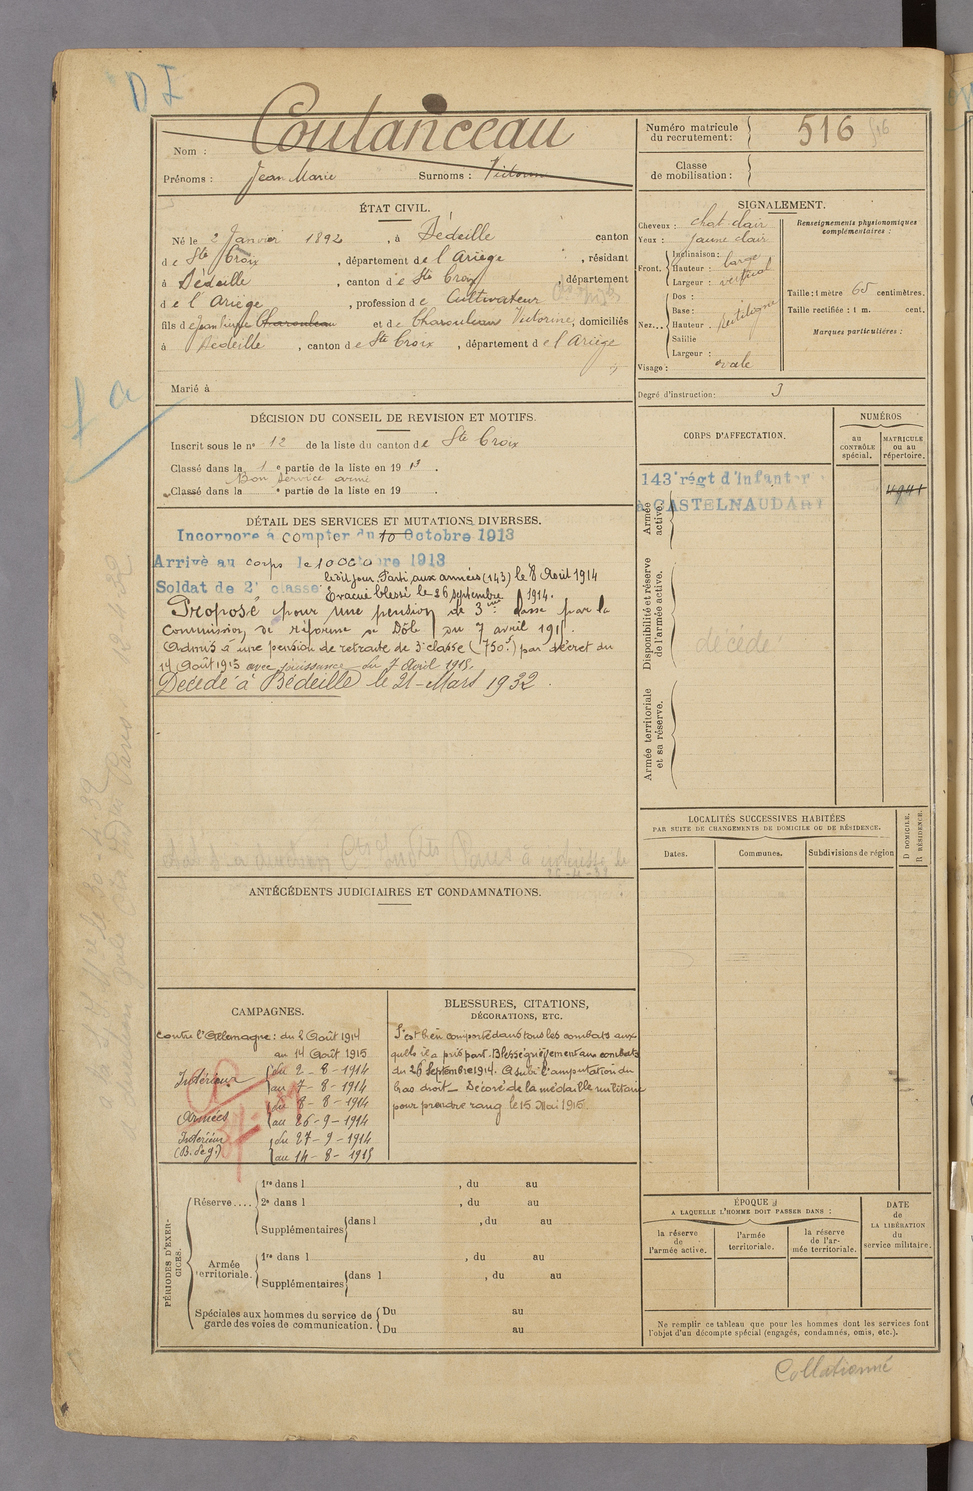 D I
Nom : Coutanceau
Prénoms : Jean Marie Surnoms : Victorin
Numéro matricule du recrutement : 516
Classe de mobilisation :
ÉTAT CIVIL.
Né le 2 Janvier 1892, à Bédeille canton
de Ste Croix, département de l'Ariège, résidant
à Bédeille, canton de Ste Croix, département
de l'Ariège, profession de Cultivateur
fils de Jean et de Victorine, domiciliés
à Bédeille, canton de Ste Croix, département de l'Ariège
Marié à
SIGNALEMENT.
Cheveux : chat clair
Yeux : jaune clair
Front. Inclinaison :
Hauteur : large
Largeur : vertical
Nez... Dos :
Base :
Hauteur : rectiligne
Saillie
Largeur :
Visage : ovale
Renseignements physionomiques complémentaires :
Taille : 1 mètre 65 centimètres.
Taille rectifiée : 1 m. cent.
Marques particulières :
Degré d'instruction : 3
DÉCISION DU CONSEIL DE REVISION ET MOTIFS.
Inscrit sous le no 12 de la liste du canton de Ste Croix
Classé dans la 1e partie de la liste en 1913.
Bon service armé
Classé dans la e partie de la liste en 19 .
DÉTAIL DES SERVICES ET MUTATIONS DIVERSES.
Incorporé à compter du 10 Octobre 1913
Arrivé au corps le 10 Octobre 1913
Soldat de 2e classe ledit jour. Parti aux armées (143) le 8 Août 1914
Evacué blessé le 26 septembre 1914.
Proposé pour une pension de 3me classe par la
Commission de réforme de Dôle du 7 avril 1915.
Admis à une pension de retraite de 3e classe (750f) par décret du
14 Août 1915 avec jouissance du 7 Avril 1915.
Décédé à Bédeille le 21 Mars 1932.
CORPS D'AFFECTATION.
NUMÉROS
au CONTRÔLE spécial.
MATRICULE ou au répertoire.
Armée active.
143e régt d'Infanterie
à CASTELNAUDARY
Disponibilité et réserve de l'armée active.
décédé
Armée territoriale et sa réserve.
LOCALITÉS SUCCESSIVES HABITÉES
PAR SUITE DE CHANGEMENTS DE DOMICILE OU DE RÉSIDENCE.
Dates.
Communes.
Subdivisions de région
D DOMICILE.
R RÉSIDENCE.
ANTÉCÉDENTS JUDICIAIRES ET CONDAMNATIONS.
CAMPAGNES.
Contre l'Allemagne : du 2 Août 1914
au 14 Août 1915
Intérieur du 2-8-1914
au 7-8-1914
Armées du 8-8-1914
au 26-9-1914
Intérieur (B. de g.) du 27-9-1914
au 14-8-1915
BLESSURES, CITATIONS,
DÉCORATIONS, ETC.
S'est bien comporté dans tous les combats aux
quels il a pris part. Blessé grièvement aux combats
du 26 Septembre 1914. A subi l'amputation du
bras droit - Décoré de la médaille militaire
pour prendre rang le 15 Mai 1915.
PÉRIODES D'EXERCICES.
Réserve....
1re dans l , du au
2e dans l , du au
Supplémentaires dans l , du au
Armée territoriale.
1re dans l , du au
Supplémentaires dans l , du au
Spéciales aux hommes du service de garde des voies de communication.
Du au
Du au
ÉPOQUE
A LAQUELLE L'HOMME DOIT PASSER DANS :
la réserve de l'armée active.
l'armée territoriale.
la réserve de l'armée territoriale.
DATE de LA LIBÉRATION du service militaire.
Ne remplir ce tableau que pour les hommes dont les services font
l'objet d'un décompte spécial (engagés, condamnés, omis, etc.).
Collationné